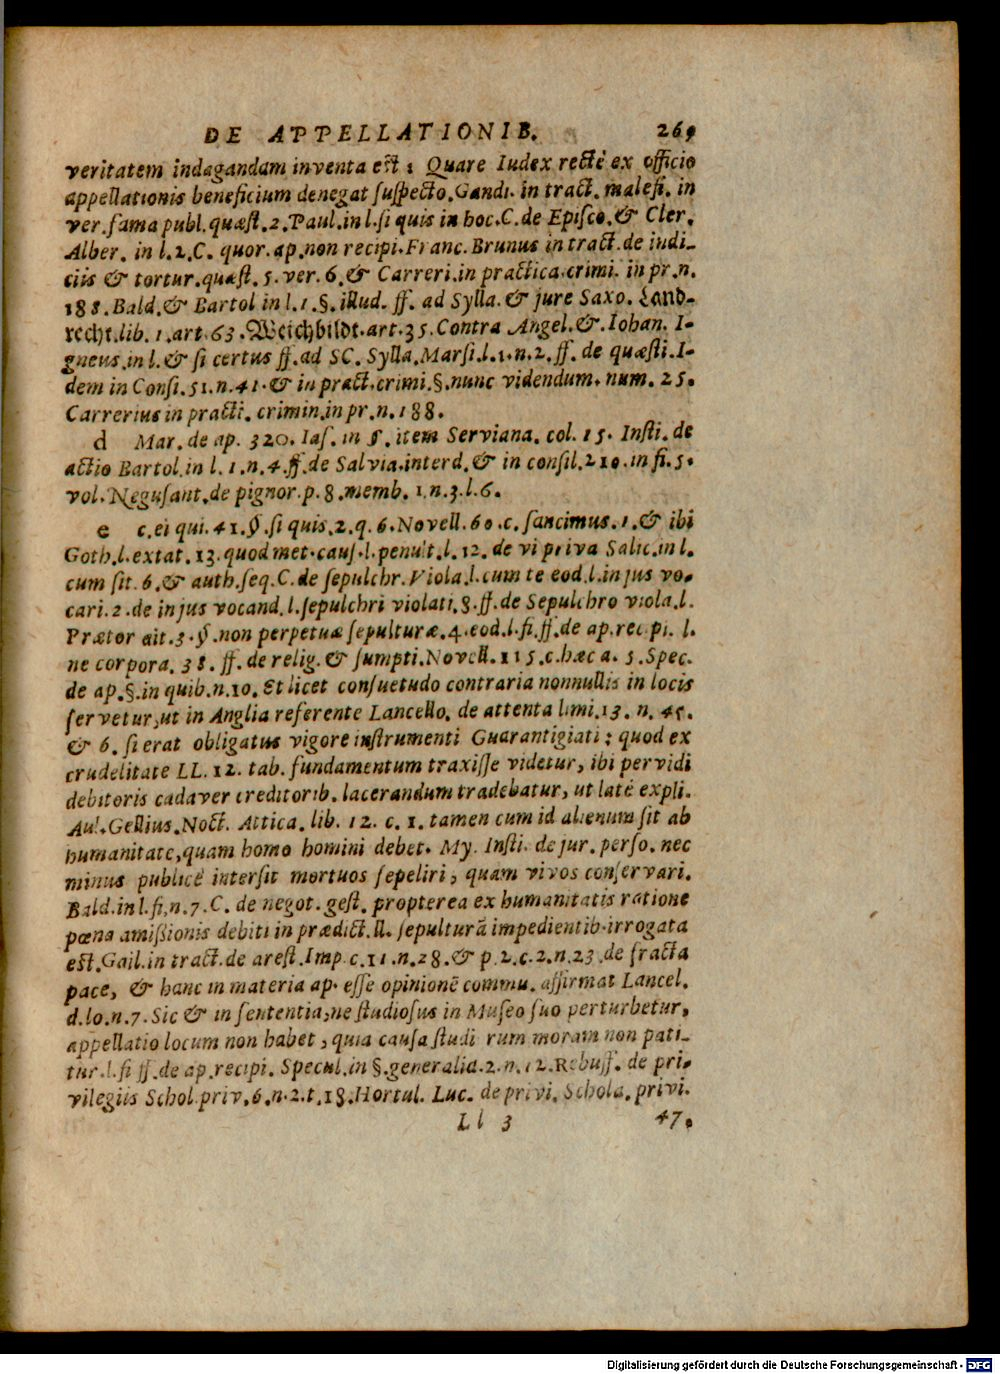 DE APPELLATIONIB. 269
veritatem indagandam inventa est: Quare Iudex rectè ex officio
appellationis beneficium denegat suspecto. Gandi. in tract. malefi. in
ver. fama publ. quæst. 2. Paul. in l. si quis in hoc. C. de Episco. & Cler.
Alber. in l. 2. C. quor. ap. non recipi. Franc. Brunus in tract. de indi-
ciis & tortur. quæst. 5. ver. 6. & Carreri. in practica. crimi. in pr. n.
188. Bald. & Bartol in l. 1. §. illud. ff. ad Sylla. & jure Saxo. Land-
recht. lib. 1. art. 63. Weichbildt. art. 35. Contra Angel. & Iohan. I-
gneus. in l. & si certus ff. ad SC. Sylla. Marsi. l. 1. n. 2. ff. de quæsti. I-
dem in Consi. 51. n. 41. & in pract. crimi. §. nunc videndum. num. 25.
Carrerius in practi. crimin. in pr. n. 188.
d Mar. de ap. 320. Ias. in §. item Serviana. col. 15. Insti. de
actio Bartol. in l. 1. n. 4. ff. de Salvia. interd. & in consil. 210. in fi. 5.
vol. Negusant. de pignor. p. 8. memb. 1. n. 3. l. 6.
e c. ei qui. 41. §. si quis. 2. q. 6. Novell. 60. c. sancimus. 1. & ibi
Goth. l. extat. 13. quod met. caus. l. penult. l. 12. de vi priva Salic. in l.
cum sit. 6. & auth. seq. C. de sepulchr. Viola. l. cum te eod. l. in jus vo-
cari. 2. de in jus vocand. l. sepulchri violati. 8. ff. de Sepulchro viola. l.
Prætor ait. 3. §. non perpetuæ sepulturæ. 4. eod. l. fi. ff. de ap. recipi. l.
ne corpora. 38. ff. de relig. & sumpti. Novell. 115. c. hæc a. 5. Spec.
de ap. §. in quib. n. 10. Et licet consuetudo contraria nonnullis in locis
servetur, ut in Anglia referente Lancello. de attenta limi. 13. n. 45.
& 6. si erat obligatus vigore instrumenti Guarantigiati: quod ex
crudelitate LL. 12. tab. fundamentum traxisse videtur, ibi per vidi
debitoris cadaver creditorib. lacerandum tradebatur, ut latè expli.
Aul. Gellius. Noct. Attica. lib. 12. c. 1. tamen cum id alienum sit ab
humanitate, quam homo homini debet. My. Insti. de jur. perso. nec
minus publicè intersit mortuos sepeliri, quam vivos conservari.
Bald. in l. fi, n. 7. C. de negot. gest. propterea ex humanitatis ratione
pœna amißionis debiti in prædict. ll. sepulturā impedientib. irrogata
est. Gail. in tract. de arest. Imp. c. 11. n. 28. & p. 2. c. 2. n. 23. de fracta
pace, & hanc in materia ap. esse opinionē commu. affirmat Lancel.
d. lo. n. 7. Sic & in sententia, ne studiosus in Museo suo perturbetur,
appellatio locum non habet, quia causa studiorum moram non pati-
tur. l. fi ff. de ap. recipi. Specul. in §. generalia. 2. n. 12. Rebuff. de pri-
vilegiis Schol. priv. 6. n. 2. t. 18. Hortul. Luc. de privi. Schola. privi.
Ll 3 47.
Digitalisierung gefördert durch die Deutsche Forschungsgemeinschaft - DFG